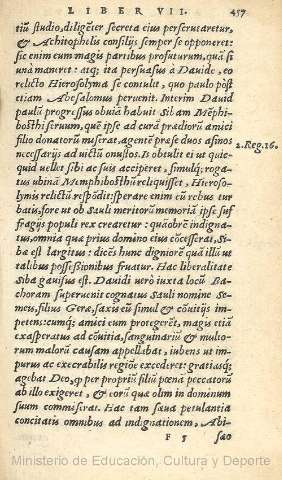 LIBER VII. 457
tiũ studio, diligẽter secreta eius perscrutaretur,
& Achitophelis consilijs semper se opponeret:
sic enim eum magis partibus profuturum, quà si
unà maneret: atq; ita persuasus à Dauide, eo
relicto Hierosolyma se contulit, quo paulo pòst
etiam Abesalomus peruenit. Interim Dauid
paulũ progressus obuiã habuit Sibam Mẽphi-
bosthi seruum, quẽ ipse ad curã prædiorũ amici
filio donatorũ miserat, agentẽ præ se duos asinos
2. Reg. 16.
necessarijs ad uictũ onustos. Is obtulit ei ut quic-
quid uellet sibi ac suis acciperet, simulq; roga-
tus ubinã Memphibosthũ reliquisset, Hieroso-
lymis relictũ respõdit: sperare enim eũ rebus tur
batis, fore ut ob Sauli meritorũ memoriã ipse suf
fragijs populi rex crearetur: quàobrẽ indigna-
tus, omnia quæ prius domino eius cõcesserat, Si-
bæ est largitus: dicẽs hunc digniorẽ quà illũ ut
talibus possessionibus fruatur. Hac liberalitate
Siba gauisus est. Dauidi verò iuxta locũ Ba-
choram superuenit cognatus Sauli nomine Se-
meis, filius Geræ, saxis eũ simul & cõuitijs im-
petens: cumq; amici eum protegerẽt, magis etiã
exasperatus ad cõuitia, sanguinariũ & multo-
rum malorũ causam appellabat, iubens ut im-
purus ac execrabilis regiõe excederet: gratiasq;
agebat Deo, ꝙ per propriũ filiũ pœnã peccatorũ
ab illo exigeret, & eorũ quæ olim in dominum
suum commiserat. Hac tam sæua petulantia
concitatis omnibus ad indignationem, Abi-
F 5 sao
Ministerio de Educación, Cultura y Deporte